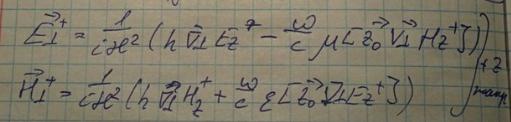 E⃗⊥⁺ = 1/(iæ²) (h ∇⃗⊥ E_z⁺ − ω/c μ [z⃗₀ ∇⃗⊥ H_z⁺])
H⃗⊥⁺ = 1/(iæ²) (h ∇⃗⊥ H_z⁺ + ω/c ε [z⃗₀ ∇⃗⊥ E_z⁺])
+z